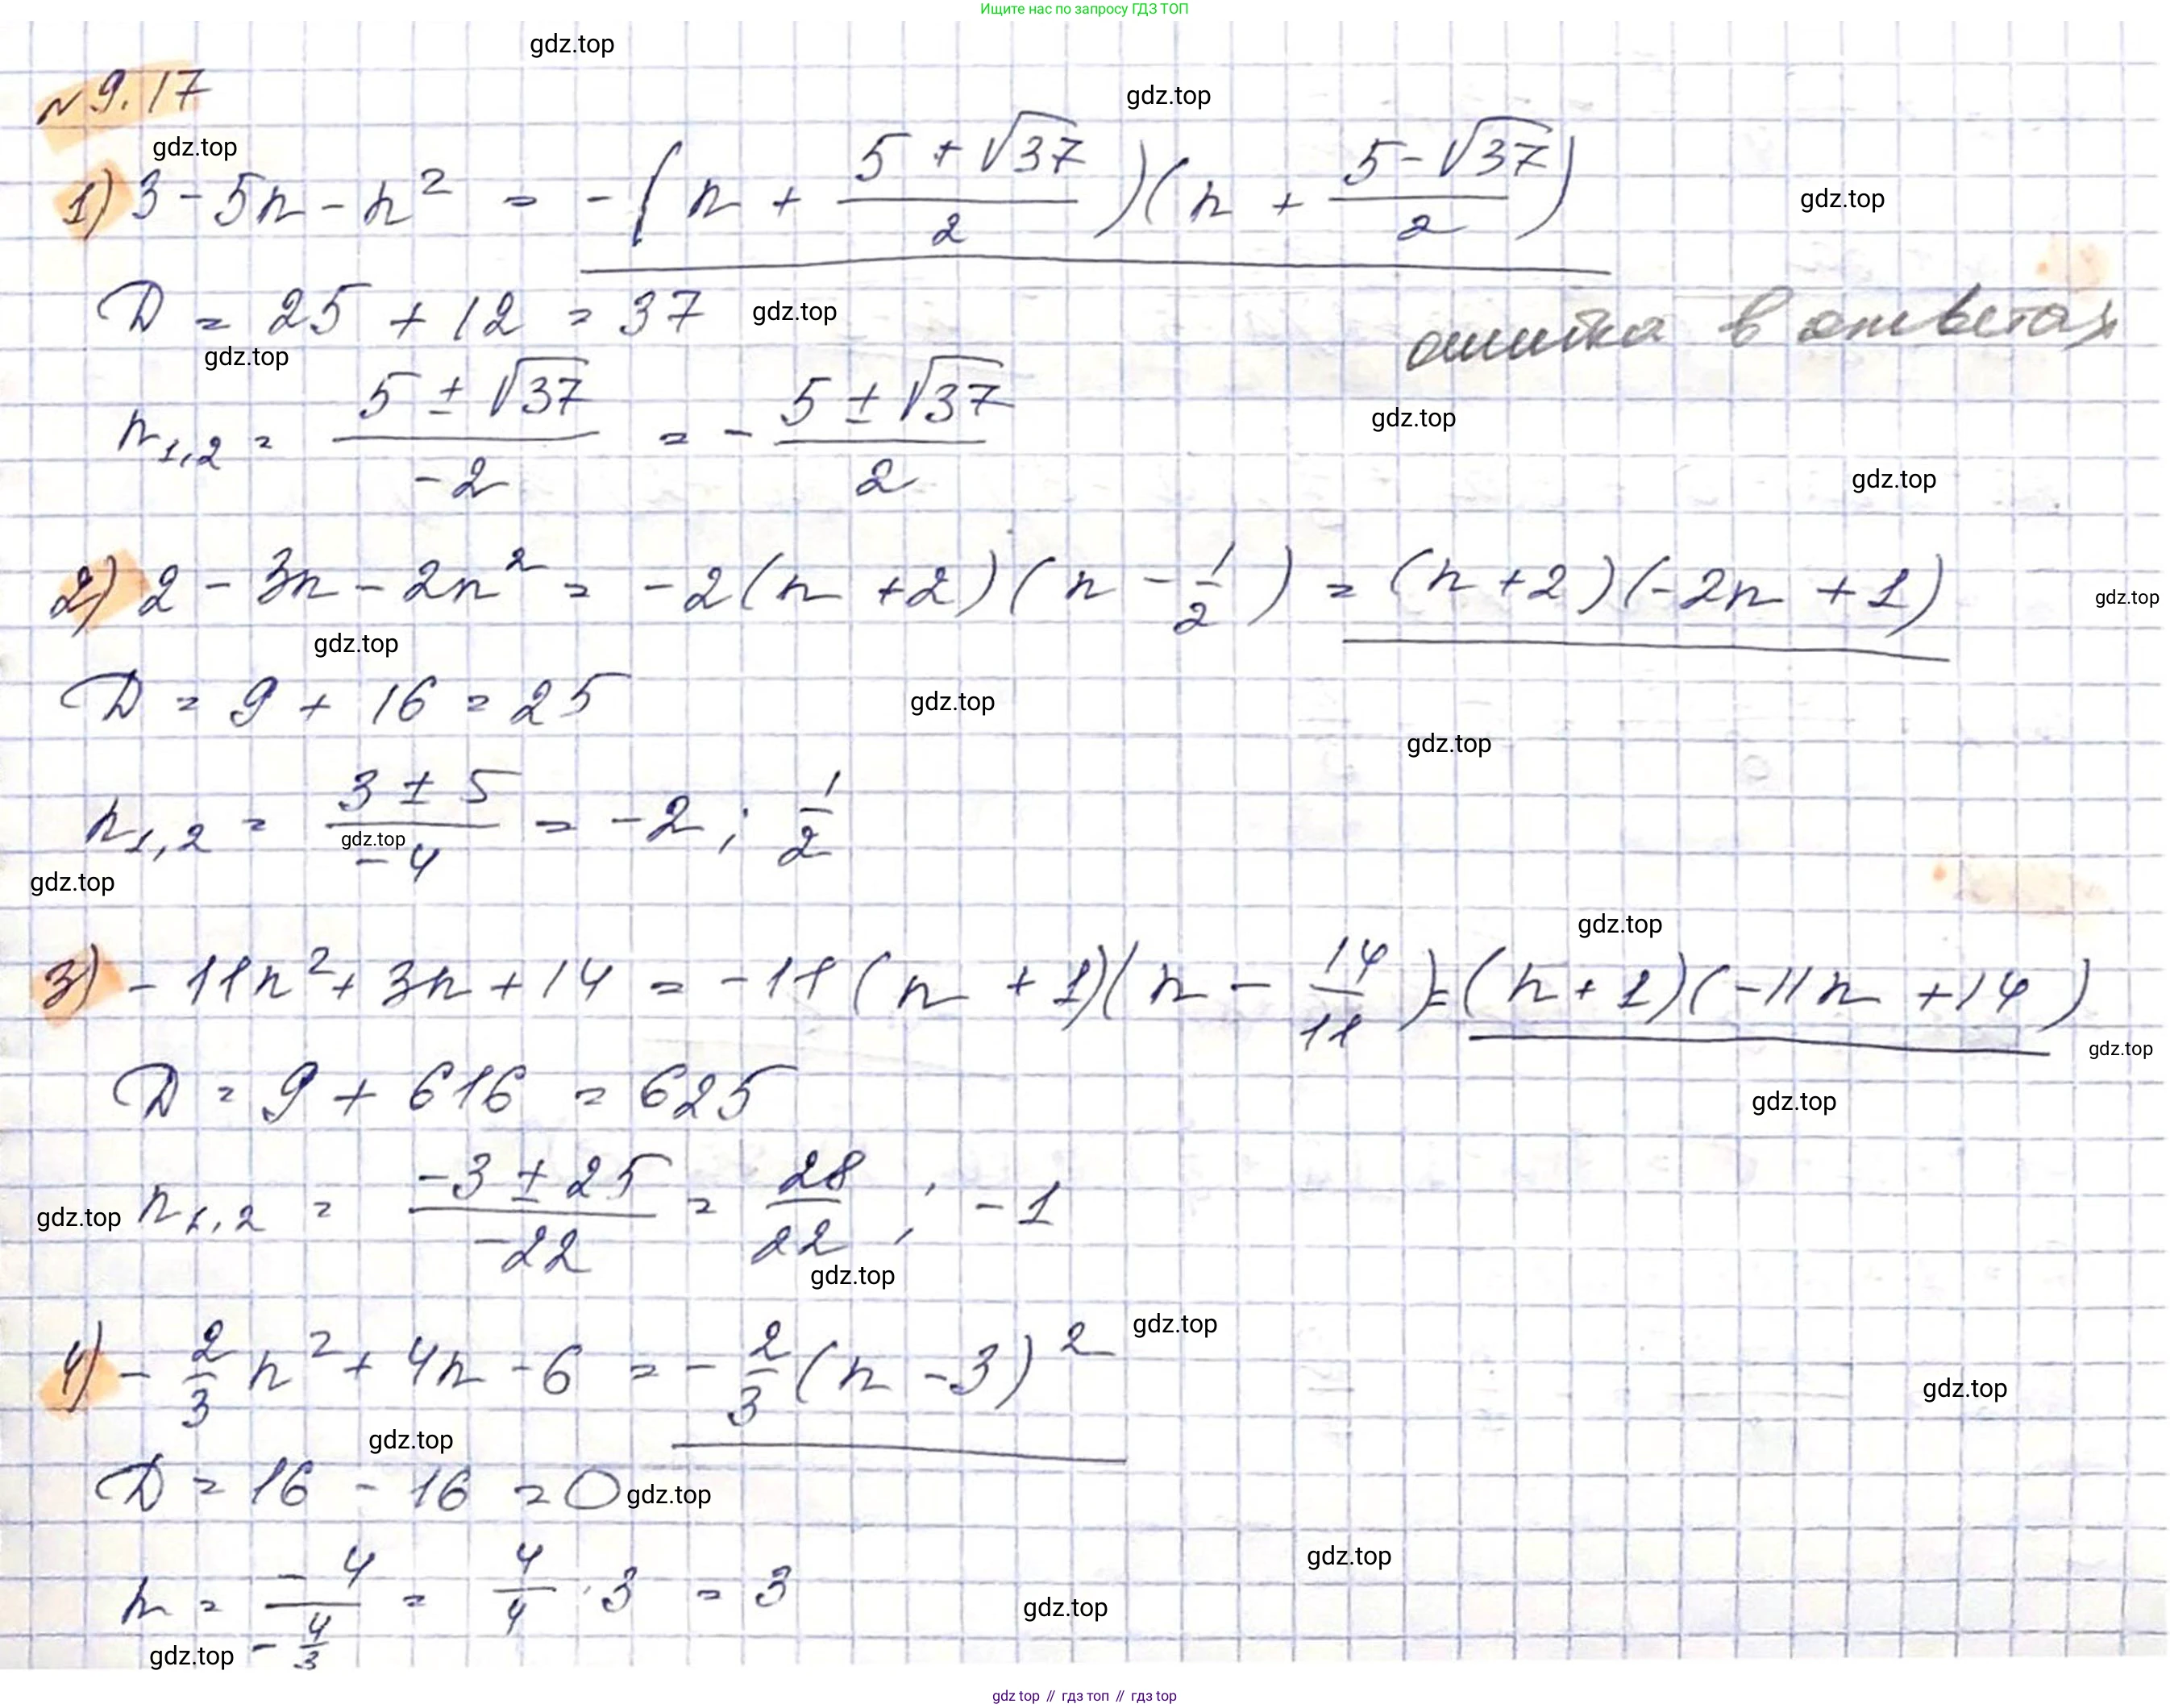 Ищите нас по запросу ГДЗ ТОП
gdz.top
№ 9.17
gdz.top
gdz.top
1) 3 - 5n - n² = -(n + (5 + √37)/2)(n + (5 - √37)/2)
gdz.top
D = 25 + 12 = 37
gdz.top
ошибка в ответах
gdz.top
n₁,₂ = (5 ± √37)/(-2) = -(5 ± √37)/2
gdz.top
gdz.top
2) 2 - 3n - 2n² = -2(n + 2)(n - 1/2) = (n + 2)(-2n + 1)
gdz.top
gdz.top
D = 9 + 16 = 25
gdz.top
gdz.top
n₁,₂ = (3 ± 5)/(-4) = -2; 1/2
gdz.top
gdz.top
gdz.top
3) -11n² + 3n + 14 = -11(n + 1)(n - 14/11) = (n + 1)(-11n + 14)
gdz.top
D = 9 + 616 = 625
gdz.top
gdz.top
n₁,₂ = (-3 ± 25)/(-22) = 28/22; -1
gdz.top
gdz.top
4) -2/3 n² + 4n - 6 = -2/3 (n - 3)²
gdz.top
gdz.top
D = 16 - 16 = 0
gdz.top
gdz.top
n = (-4)/(-4/3) = 4/4 · 3 = 3
gdz.top
gdz.top
gdz top // гдз топ // гдз top